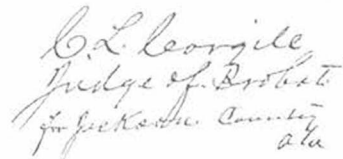 C. L. Cargile
Judge of Probat.
for Jackson County
Ala